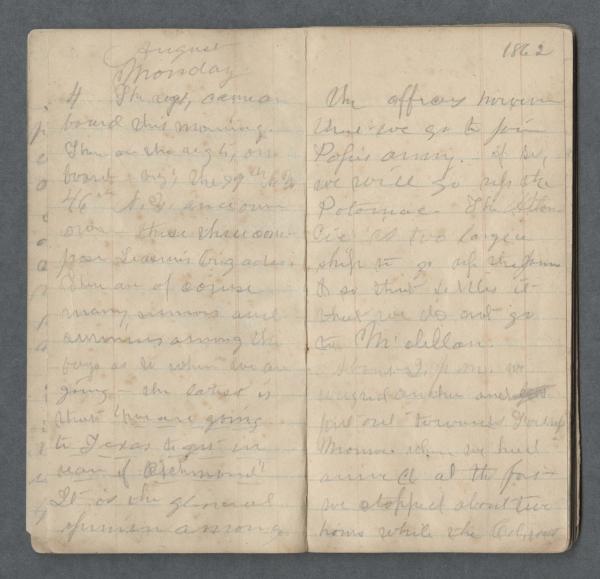 August
Monday
4 The regt, came on
board this morning.
There are three regts, on
board
46th N.Y. and our
own - these three com-
pose brigade.
There are of course
many rumors and
surmises among the
boys as to where we are
going - the latest is
that "we are going
to Texas to get in
rear of Richmond"
It is the general
opinion among
1862
the officers however
that we go to join
Pope's army. if so,
we will go up the
Potomac. The
is too large a
ship to go up the James
& so that settles it
that we do not go
to McClellan.
we
weighed anchor and
put out towards Fortress
Monroe when we had
arrived at the fort
we stopped about two
hours while the